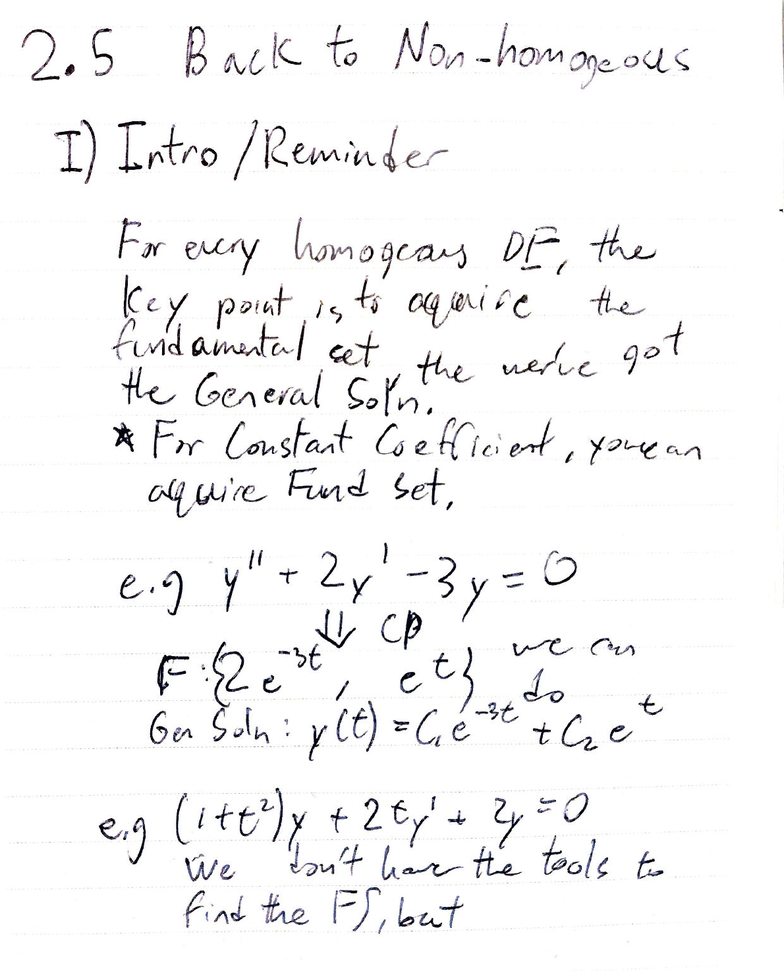 2.5 Back to Non-homogeous
I) Intro / Reminder
For every homogeous DE, the
key point is to aquire the
fundamental set, the we've got
the General Sol'n.
* For Constant Coefficient, you can
aquire Fund set,
e.g y" + 2y' - 3y = 0
⇓ CP
F:{2e^-3t, e^t} we can do
Gen Soln: y(t) = C₁e^-3t + C₂e^t
e.g (1+t²)y + 2ty' + 2y = 0
We don't have the tools to
find the FS, but